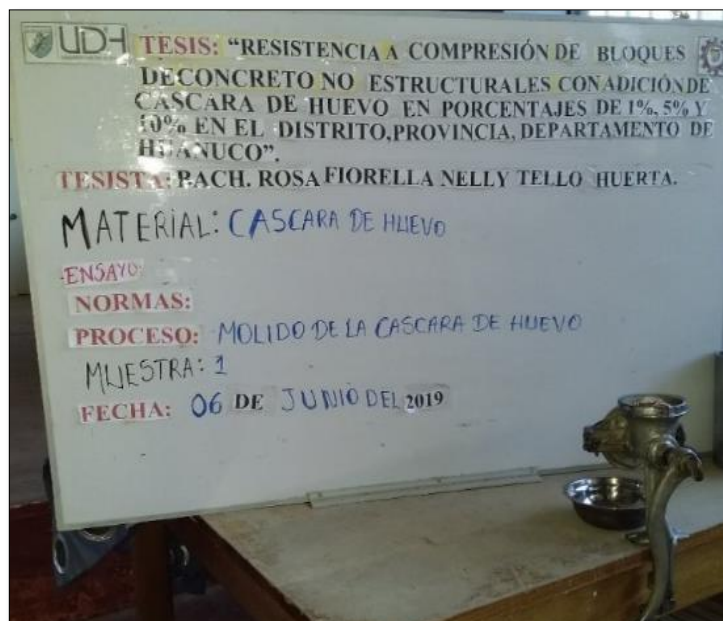 UDH
TESIS: “RESISTENCIA A COMPRESIÓN DE BLOQUES
DECONCRETO NO ESTRUCTURALES CON ADICIÓN DE
CASCARA DE HUEVO EN PORCENTAJES DE 1%, 5% Y
10% EN EL DISTRITO,PROVINCIA, DEPARTAMENTO DE
HUANUCO”.
TESISTA: BACH. ROSA FIORELLA NELLY TELLO HUERTA.
MATERIAL: CASCARA DE HUEVO
ENSAYO:
NORMAS:
PROCESO: MOLIDO DE LA CASCARA DE HUEVO
MUESTRA: 1
FECHA: 06 DE JUNIO DEL 2019